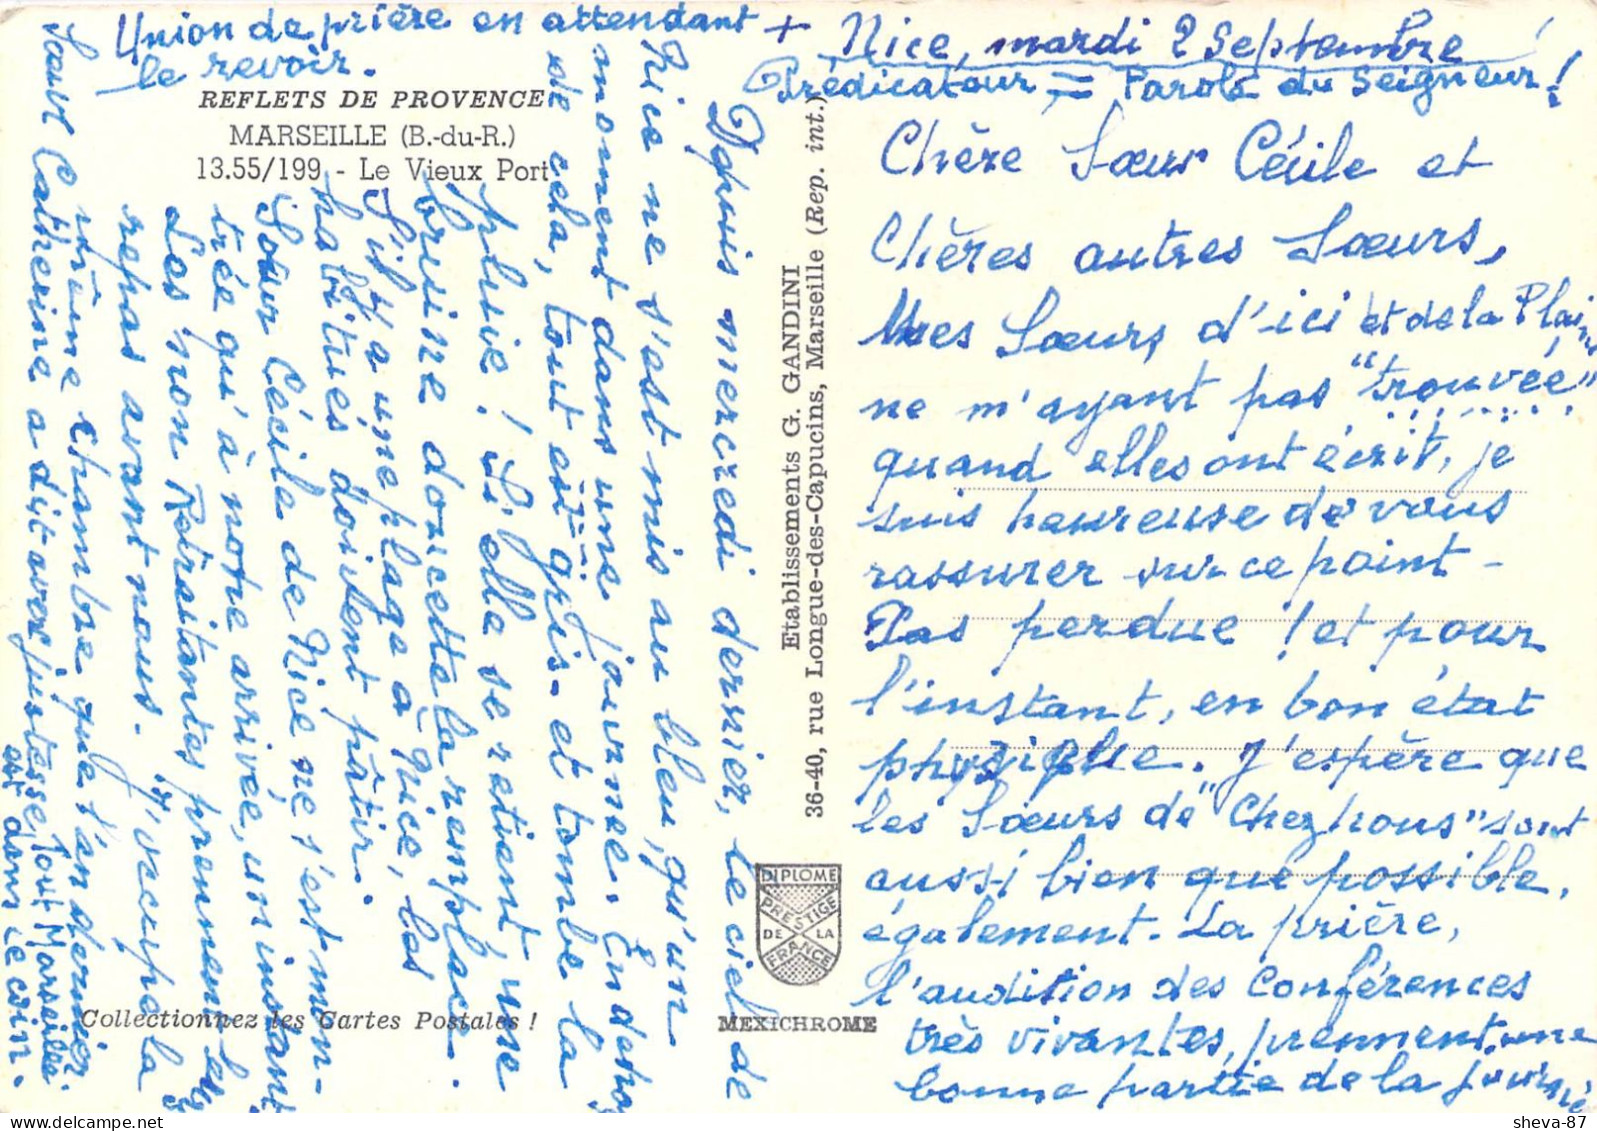 + Nice, mardi 2 Septembre
Prédicateur = Parole du Seigneur !
Chère Sœur Cécile et
Chères autres Sœurs,
Mes Sœurs d'ici et de la Plaine
ne m'ayant pas "trouvée"
quand elles ont écrit, je
suis heureuse de vous
rassurer sur ce point -
Pas perdue ! et pour
l'instant, en bon état
physique. J'espère que
les Sœurs de "Chez nous" sont
aussi bien que possible,
également. La prière,
l'audition des Conférences
très vivantes, prennent une
bonne partie de la journée
Depuis mercredi dernier, le ciel de
Nice ne s'est mis au bleu, qu'un
moment dans une journée. En dehors
de cela, tout est gris. et tombe la
pluie ! Si elle se retient, une
bruine doucette la remplace.
S'il y a une plage à Nice, les
habitués doivent pâtir.
Sœur Cécile de Nice ne s'est mon-
trée qu'à notre arrivée, un instant
Les non Retraitantes prennent leur
repas avant nous. J'occupe la
même chambre que l'an dernier
Sœur Catherine a dit avec justesse, tout Marseille
est dans le coin.
Union de prière en attendant
le revoir.
REFLETS DE PROVENCE
MARSEILLE (B.-du-R.)
13.55/199 - Le Vieux Port
Etablissements G. GANDINI
36-40, rue Longue-des-Capucins, Marseille (Rep. int.)
DIPLOME
PRESTIGE
DE LA
FRANCE
Collectionnez les Cartes Postales !
MEXICHROME
sheva-87